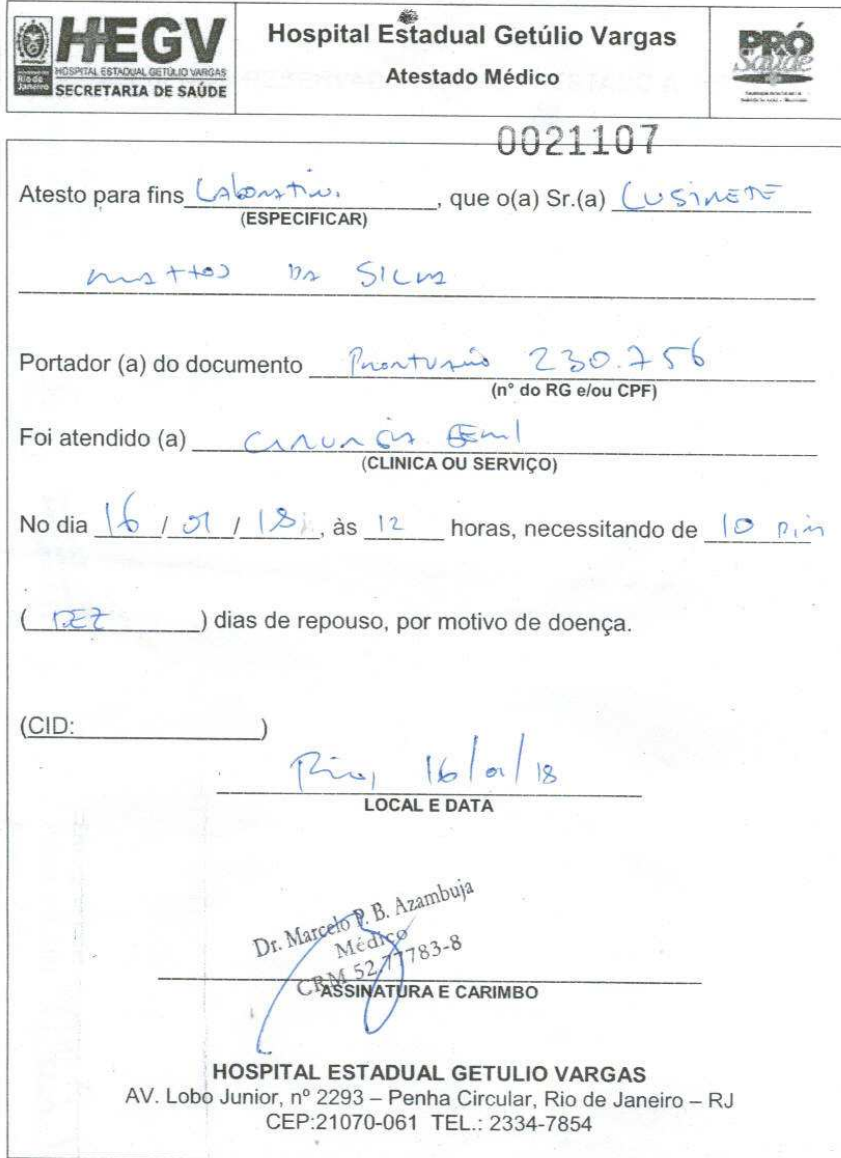 HEGV
HOSPITAL ESTADUAL GETÚLIO VARGAS
SECRETARIA DE SAÚDE
Hospital Estadual Getúlio Vargas
Atestado Médico
PRÓ
Saúde
0021107
Atesto para fins Laborativ. , que o(a) Sr.(a) Lusinete
(ESPECIFICAR)
mattos da Silva
Portador (a) do documento Prontuário 230.756
(n° do RG e/ou CPF)
Foi atendido (a) Cirurgia Geral
(CLINICA OU SERVIÇO)
No dia 16 / 01 / 18, às 12 horas, necessitando de 10 Dias
( DEZ ) dias de repouso, por motivo de doença.
(CID: )
Rio, 16/01/18
LOCAL E DATA
Dr. Marcelo P. B. Azambuja
Médico
CRM 52.77783-8
ASSINATURA E CARIMBO
HOSPITAL ESTADUAL GETULIO VARGAS
AV. Lobo Junior, nº 2293 – Penha Circular, Rio de Janeiro – RJ
CEP:21070-061 TEL.: 2334-7854